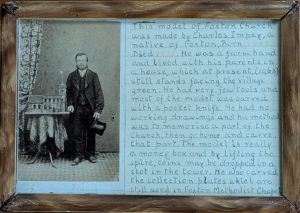 This model of Foxton Church
was made by Charles Impey, a
native of Foxton, Born
Died He was a farm hand
and lived with his parents in
a house, which at present, (1963)
still stands facing the village
green. He had very few tools and
most of the model was carved
with a pocket knife. He had no
working drawings and his method
was to memorise a part of the
church, then go home and carve
that part. The model is really
a money box and by lifting the
spire, coins may be dropped in a
slot in the tower. He also carved
the collection plates which are
still used in Foxton Methodist Chapel